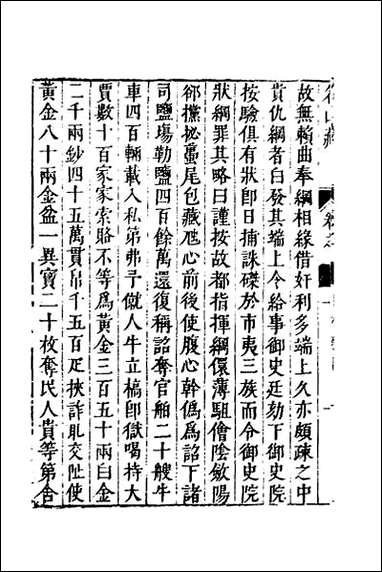 故無賴曲奉綱相緣借奸利多端上久亦頗疎之中
貴仇綱者白發其端上令給事御史廷劾下御史院
按驗俱有狀即日捕誅磔於市夷三族而令御史院
狀綱罪其略曰謹按故都指揮綱儇薄駔儈陰斂陽
邠攘挻蠆尾包藏虺心前後使腹心幹僞爲詔下諸
司鹽場勒鹽四百餘萬還復稱詔奪官舶二十艘牛
車四百輛載入私第弗予僦人牛立槁卽獄喝持大
賈數十百家家索賂不等爲黃金三百五十兩白金
二千兩鈔四十五萬貫帛千五百疋挾詐乩交阯使
黃金八十兩金盆一異寶二十枚奪民人貴等第舍